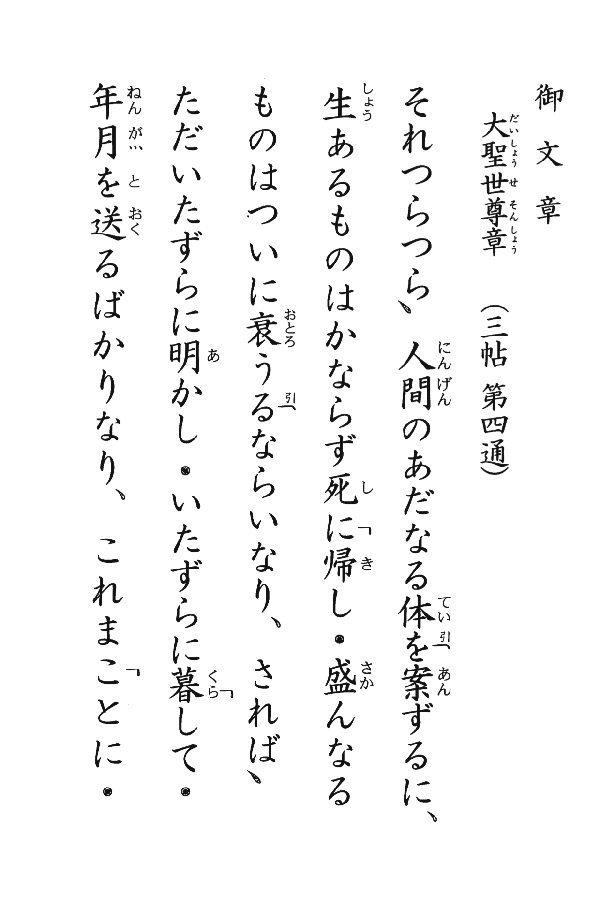 御文章
大聖世尊章 (三帖 第四通)
それつらつら、人間のあだなる体を案ずるに、
生あるものはかならず死に帰し・盛んなる
ものはついに衰うるならいなり、されば、
ただいたずらに明かし・いたずらに暮して・
年月を送るばかりなり、これまことに・